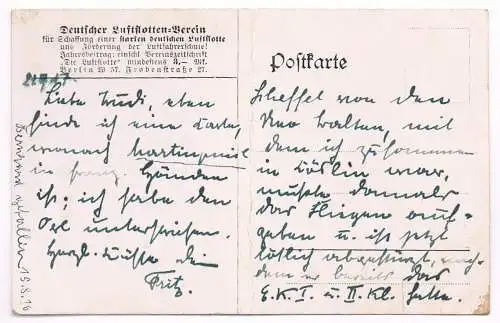 Deutscher Luftflotten-Verein
für Schaffung einer starken deutschen Luftflotte
und Förderung der Luftfahrerschule!
Jahresbeitrag: einschl. Vereinszeitschrift
"Die Luftflotte" mindestens 3,— Mk.
Berlin W 57, Frobenstraße 27.
Postkarte
Liebe Trudi, eben
finde ich eine Karte,
wonach
in franz. Händen
ist; ich habe den
unterstrichen.
Herzl. Küsse Dein
Fritz.
von den
mit
dem ich zusammen
in Köslin war,
mußte damals
das Fliegen auf-
geben u. ist jetzt
tötlich abgestürzt, nach-
dem er bereits das
E.K. I. u. II. Kl. hatte.
gefallen 15.8.16